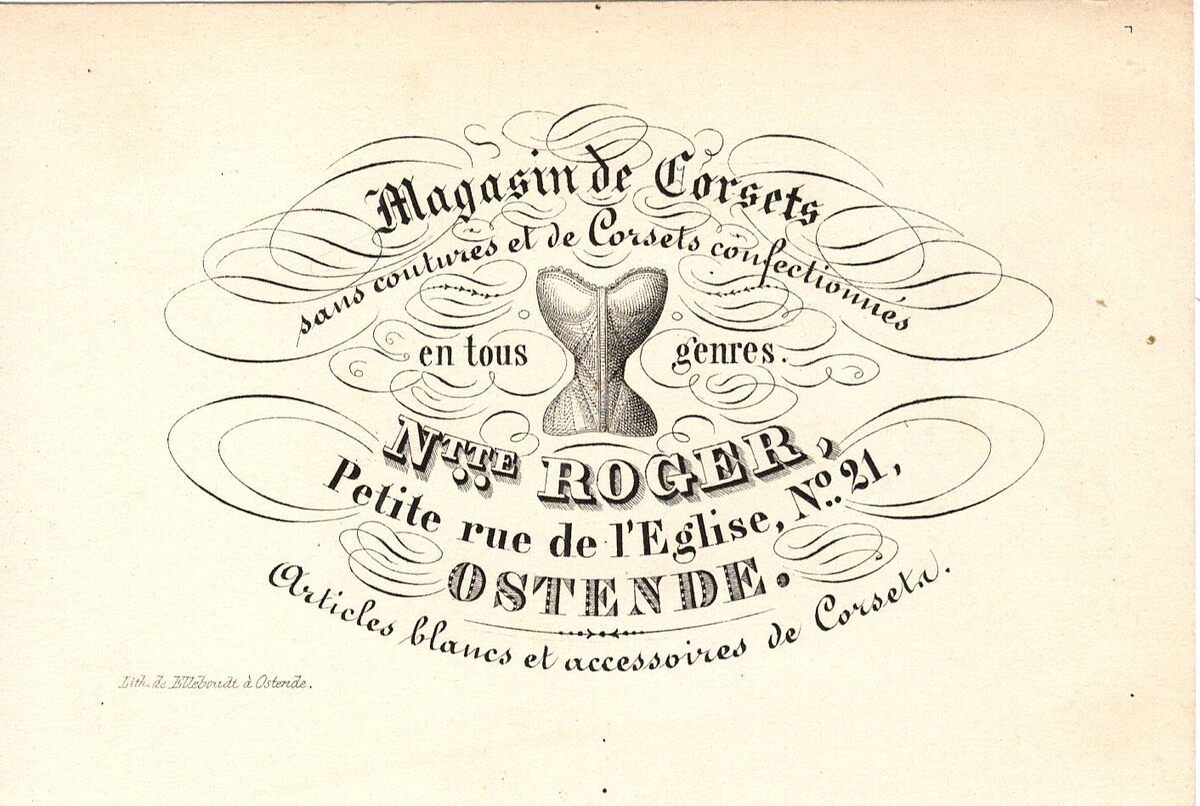 Magasin de Corsets
sans coutures et de Corsets confectionnés
en tous genres.
NTTE ROGER,
Petite rue de l'Eglise, No. 21,
OSTENDE.
Articles blancs et accessoires de Corsets.
Lith. de Elleboudt à Ostende.